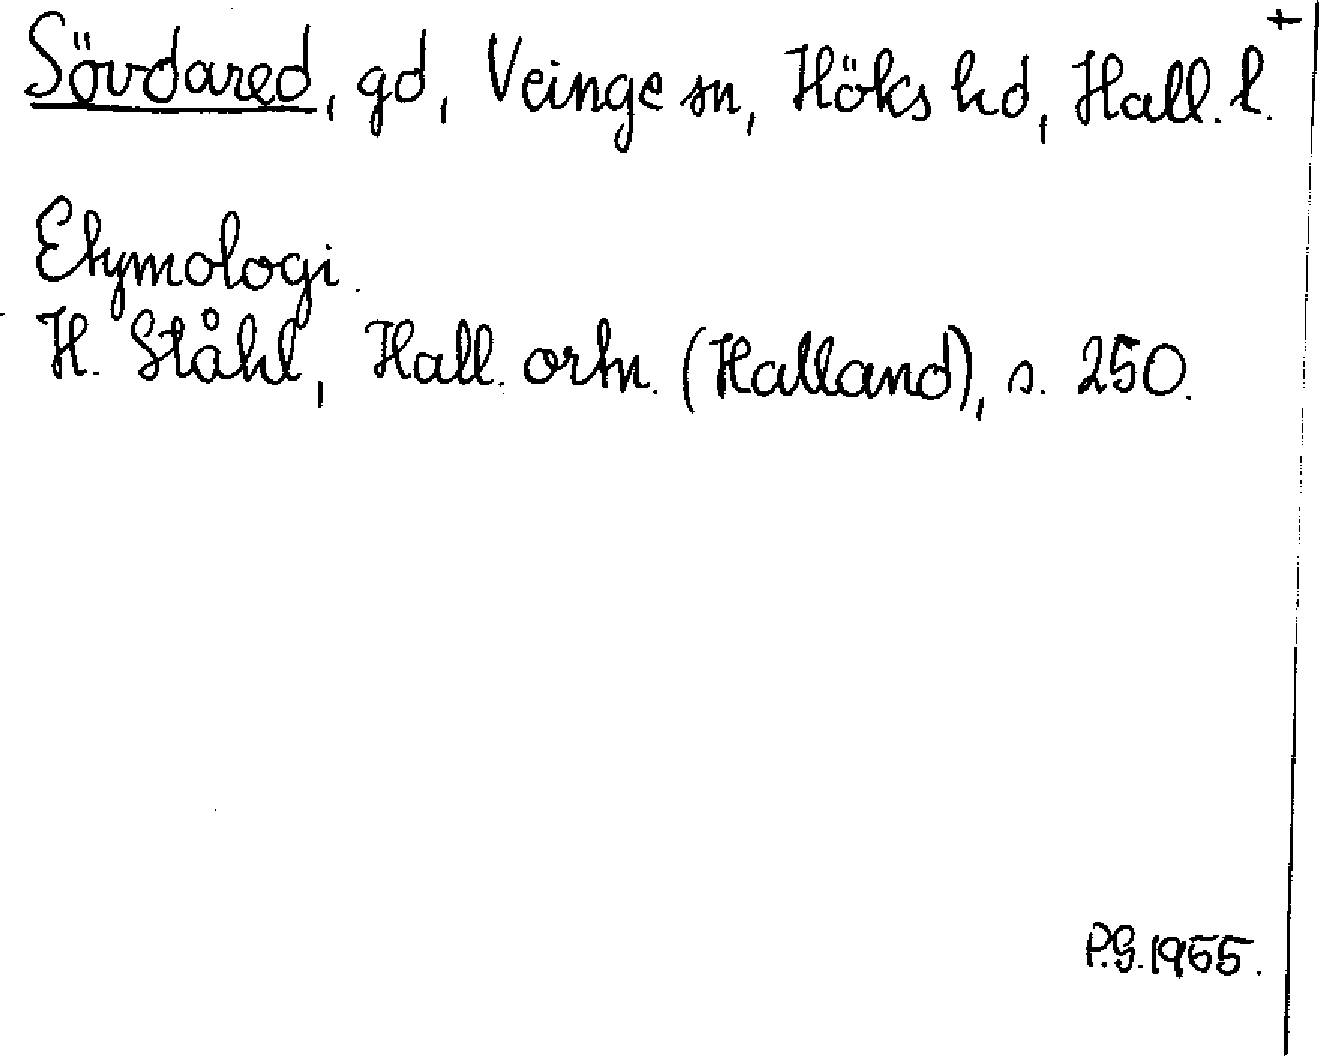 Sövdared, gd, Veinge sn, Höks hd, Hall. l. +
Etymologi.
H. Ståhl, Hall. ortn. (Halland), s. 250.
P.G. 1955.